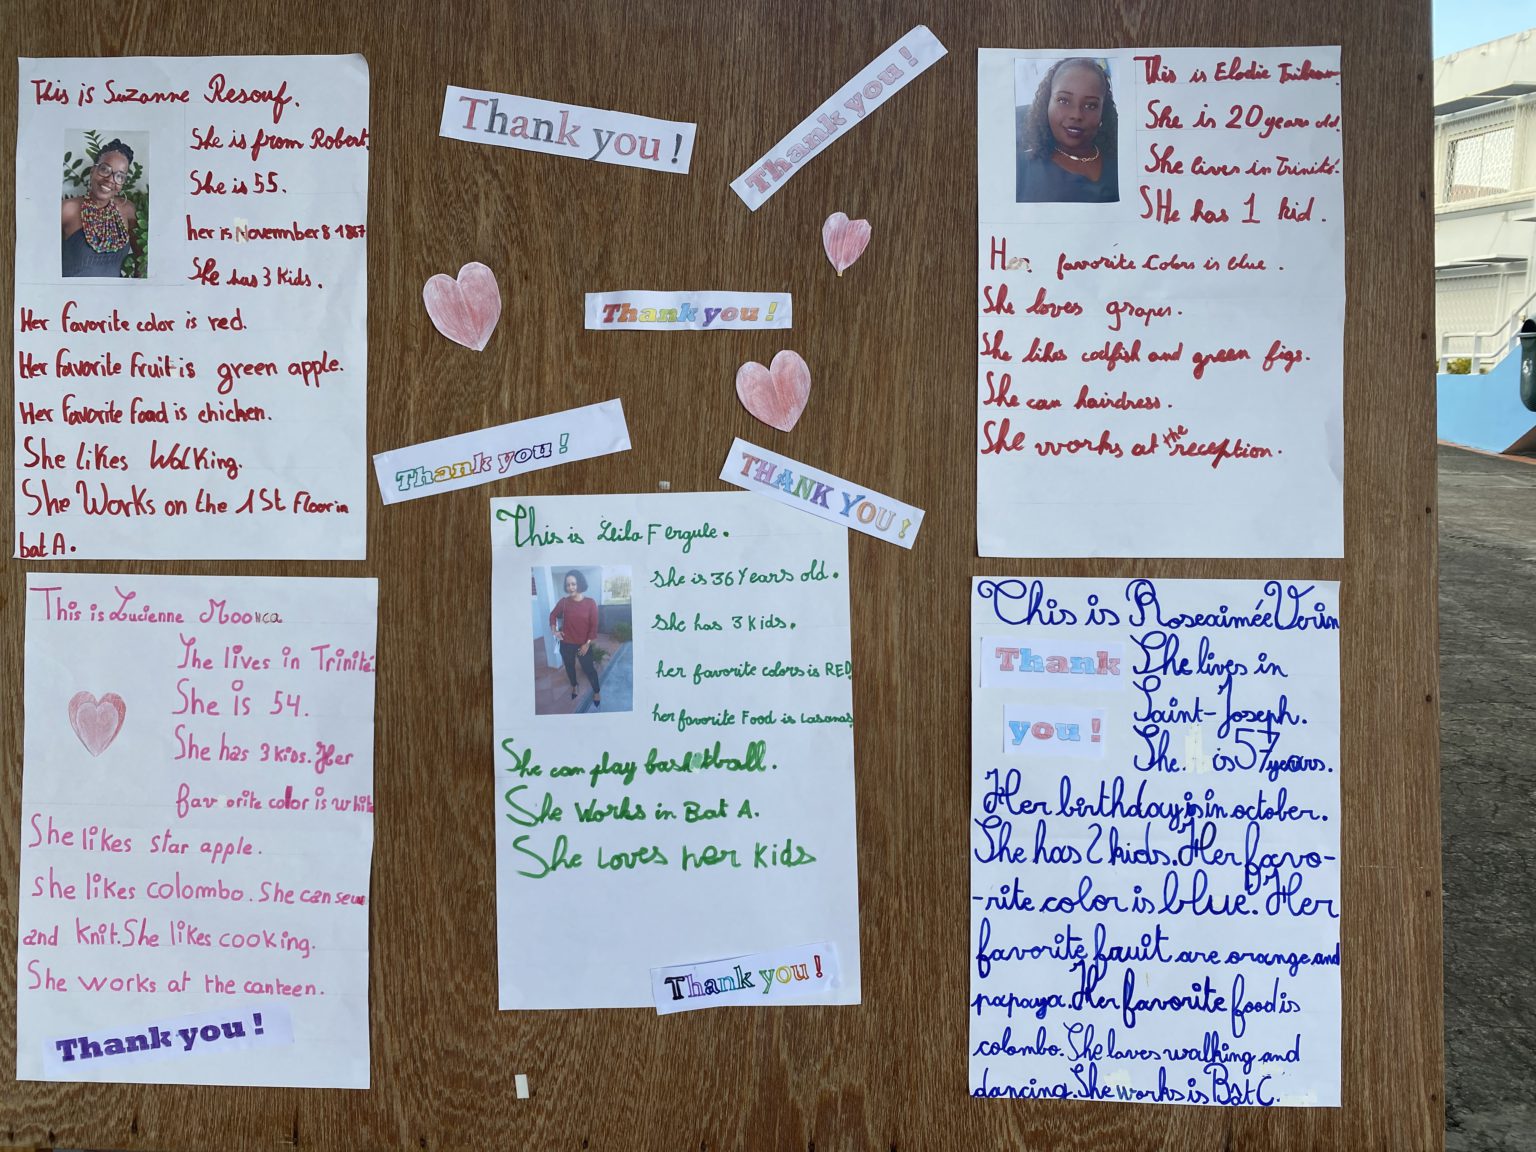 This is Suzanne Resouf.
She is from Robert.
She is 55.
her is November 8 1867
She has 3 kids.
Her favorite color is red.
Her favorite Fruit is green apple.
Her favorite Food is chicken.
She likes Walking.
She Works on the 1St Floor in
bat A.
Thank you !
Thank you !
Thank you !
Thank you !
THANK YOU !
This is Elodie
She is 20 years old.
She lives in Trinité.
SHe has 1 kid.
Her favorite Colors is blue.
She loves grapes.
She likes codfish and green figs.
She can hairdress.
She works at the reception.
This is Lucienne
She lives in Trinité.
She is 54.
She has 3 kids. Her
favorite color is white
She likes star apple.
she likes colombo. She can sew
and knit. She likes cooking.
She works at the canteen.
Thank you !
This is Leila Fergule.
She is 36 Years old.
She has 3 kids.
her favorite colors is RED
her favorite Food is Lasanas
She can play basketball.
She Works in Bat A.
She Loves her kids
Thank you !
This is Roseaimée Verin
Thank
you !
She lives in
Saint-Joseph.
She is 57 years.
Her birthday is in october.
She has 2 kids. Her favo-
-rite color is blue. Her
favorite fruit are orange and
papaya. Her favorite food is
colombo. She loves walking and
dancing. She works is Bat C.